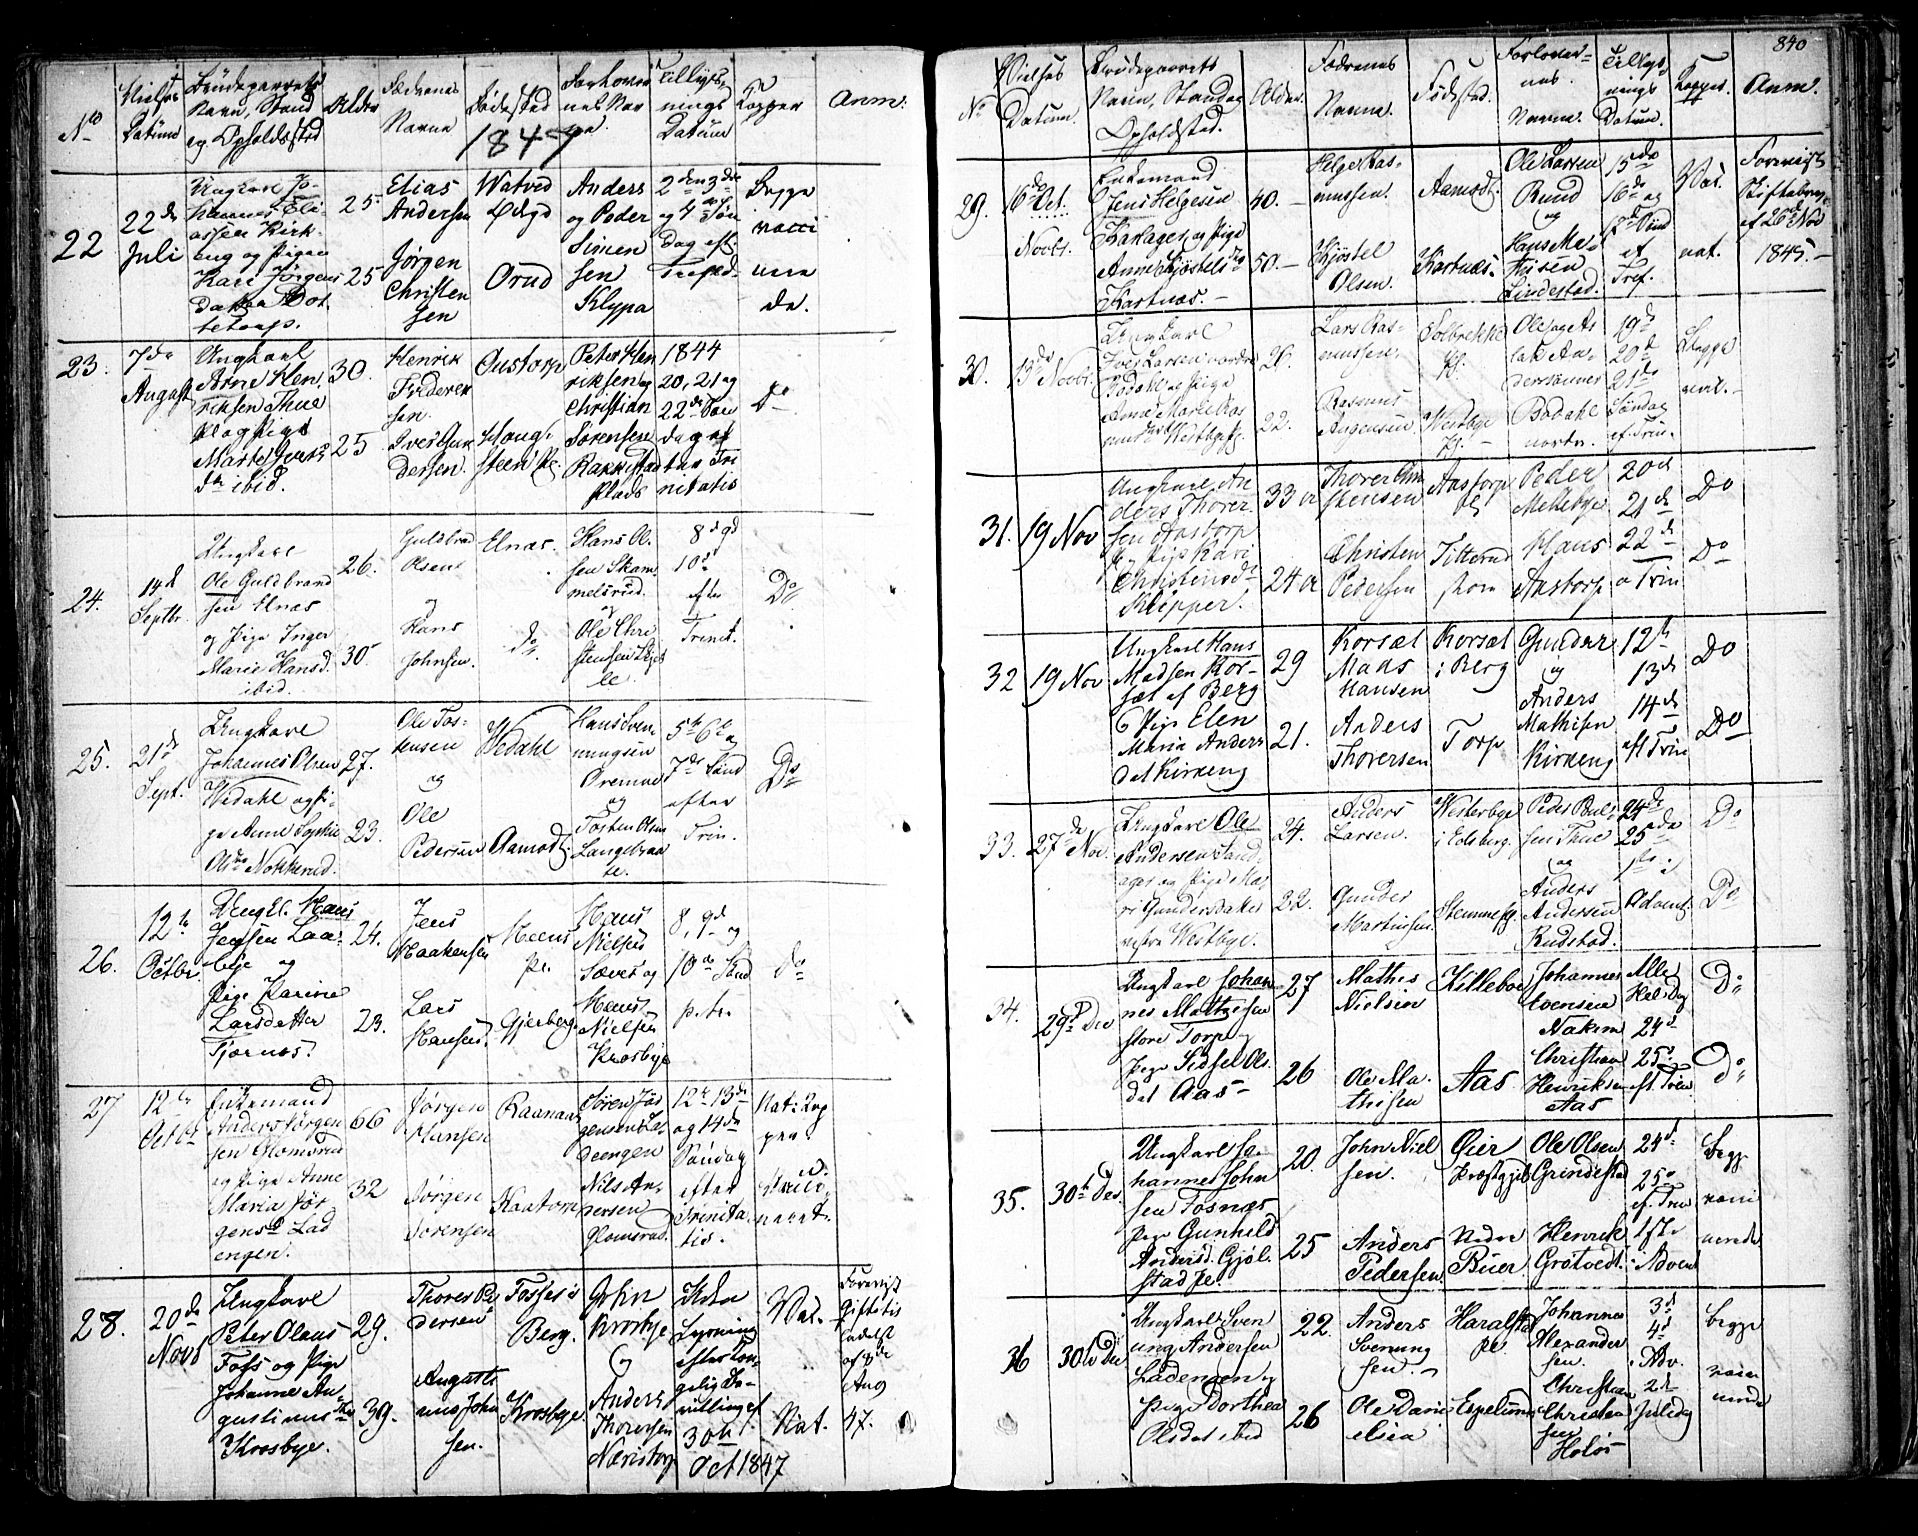 840
No
Vielses Datum
Brudeparrets Navn, Stand og Opholdssted
Alder
Fædrenes Navne
Fødested
Forlovernes Navne
Tillysnings Datum
Kopper
Anm.
1847
22
22de Juli
Ungkarl Johannes Eliassen Kirkeng og Pige Kari Jørgensdatter
25
25
Elias Andersen
Jørgen Christensen
Watved
Orud
Anders og Peder Simensen Klypa
2den 3die og 4de Søndag eft. Trefold.
Begge vaccinerede.
23.
7de August
Ungkarl Arne Henriksen Thue Pl og Pige Marte Iversdr ibid.
30.
25
Henrik Frederiksen.
Iver Gundersen.
Oustorp
Haugsteen Pl.
Peter Henriksen og Christian Sørensen Rakkestad Plads
1844 20, 21 og 22de Søndag efter Trinitatis
Do
24.
14d Septbr.
Ungkarl Ole Guldbrandsen Elnæs og Pige Inger Marie Hansd. ibid.
26.
30.
Guldbrand Olsen og Hans Johnsen.
Elnæs.
do.
Hans Olsen Skammelsrud. og Ole Christensen
8d 9d 10d efter Trinit.
Do
25.
21de Sept.
Ungkarl Johannes Olsen Wedahl og Pige Anne Sophie Olsdr Nokkerud.
27.
23.
Ole Tostensen og Ole Pedersen
Wedahl
Aamodt.
Hans Svenningsen og Tosten Olsen Langebraate.
5te 6te og 7de Sønd efter Trin.
Do
26.
12te Octbr.
Ungk. Hans Jensen og Pige Karine Larsdatter Tjærnæs.
24.
23.
Jens Haakensen
Lars Hansen.
Meens Pl.
Gjerberg
Hans Nielsen og Hans Nielsen Krosbye
8, 9d og 10de Sønd p. tr.
do
27
12te Octbr
Enkemand Anders Jørgensen Glomsrud og Pige Anne Maria Jørgensd Ladengen.
66
32
Jørgen Hansen
Jørgen Sørensen
Raanaas
Kaatorp
Søren Jørgensen Ladeengen
Nils Andersen Glomsrud.
12te 13de og 14de Søndag efter Trinitatis.
Nat: Kopper.
Vaccineret.
28.
20de Novb
Ungkarl Peter Olaus Foss og Pige Johanne Augustinusdr Krosbye.
29.
39.
Thorer Pedersen
Augustinus Johnsen.
Fosse i Berg.
Krosbye
John Krosbye
Anders Thoresen Næristorp
Ikke Lysning efter Kongelig Bevilling af 30te Oct 1847
Vac.
Nat.
Forevist Giftetiladelse af 8de Aug 47.
No
Vielses Datum.
Brudeparrets Navn, Stand og Opholdssted.
Alder.
Fædrenes Navne.
Fødested.
Forlovernes Navne.
Tillysnings Datum.
Kopper.
Anm.
29.
16de Oct.
Novbr.
Enkemand Jens Helgesen Karlager og Pige Anne Kjøstelsdr Kartnæs.
40.
50.
Helge Rasmussen.
Kjøstel Olsen.
Aamodt.
Kartnæs.
Ole Larsen Rund og Hans Mathisen Lindestad.
15de 16de og 17de Sønd ef Tref.
Vac.
nat.
Forevist Skiftebrev af 26de Nov 1845.
30.
13de Novbr.
Ungkarl Iver Larsen nordre Bodahl og Pige Anne Marie Rasmusdatter Westbye
26.
22.
Lars Rasmussen.
Rasmus Augensen
Solbrække
Westbye
Ole og Aslak Anderssønner Bodahl nordre.
19de 20de 21de Søndag ef. Trin.
Begge vac.
31.
19 Nov
Ungkarl Anders Thoresen Aastorp og Pige Kari Christensdr Klepper.
33 Ar
24 Ar
Thorer Christensen
Christen Pedersen
Aastorp
Titterud
Peder Mellebye
Hans Aastorp
20d 21d 22d a Trin
Do
Do
32
19 Nov
Ungkarl Hans Madsen Korsæt af Berg og Pige Elen Maria Andersdat Kirkeng
29
21.
Korsæt Mads Hansen
Anders Thoresen
Korsæt i Berg
Torp
Gunder og Anders Mathisen Kirkeng
12te 13de 14de eft Trin
Do
Do
33.
27de Nov.
Ungkarl Ole Andersen Sandager og Pige Mari Gundersdatter vestre Westbye.
24.
22.
Anders Larsen.
Gunder Martinsen.
Westerbye i Eidsberg.
Peder Poulsen Thue og Anders Andersen Rudstad.
24de 25de
Advent.
Do
Do
34.
29d Dec
Ungkarl Johannes Mathisen store Torp og Pige Sidsel Olsdat Aas
27
26
Mathis Nielsen
Ole Mathisen
Killebo
Aas
Johannes Evensen Nakim
Christian Henriksen Aas
Alle Hel.dg 24d 25d eft Trin
Do
Do
35.
30te Dec.
Ungkarl Johannes Johnsen Fosnæs Pige Gunhild Andersd. Gjølstad Pe.
20.
25
John Nielsen.
Anders Pedersen
Øier Præstegjeld
Nedre Buer
Ole Olsen Grindestad
Henrik Grøtvedt.
24d 25d ef. Trin 1ste i Advent
Begge vaccinerede
36
30te Dec
Ungkarl Svenning Andersen Ladengen og Pige Dorthea Olsdat ibid
22.
26
Anders Svenningsen.
Ole Danielsen
Haralstad Pl.
Espelund
Johannes Alexandersen.
Christian Christensen Holøs
3d 4d i Adv. 2d Juledg
begge vaccinerede